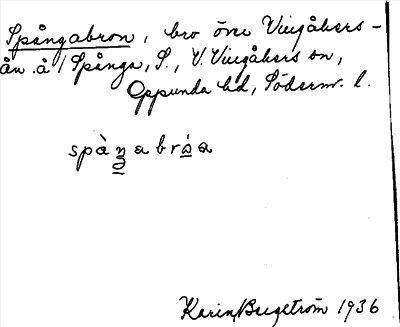 Spångabron, bro över Vingåkers-
ån å Spånga, S., V. Vingåkers sn,
Oppunda hd, Söderm. l.
Karin Bergström 1936